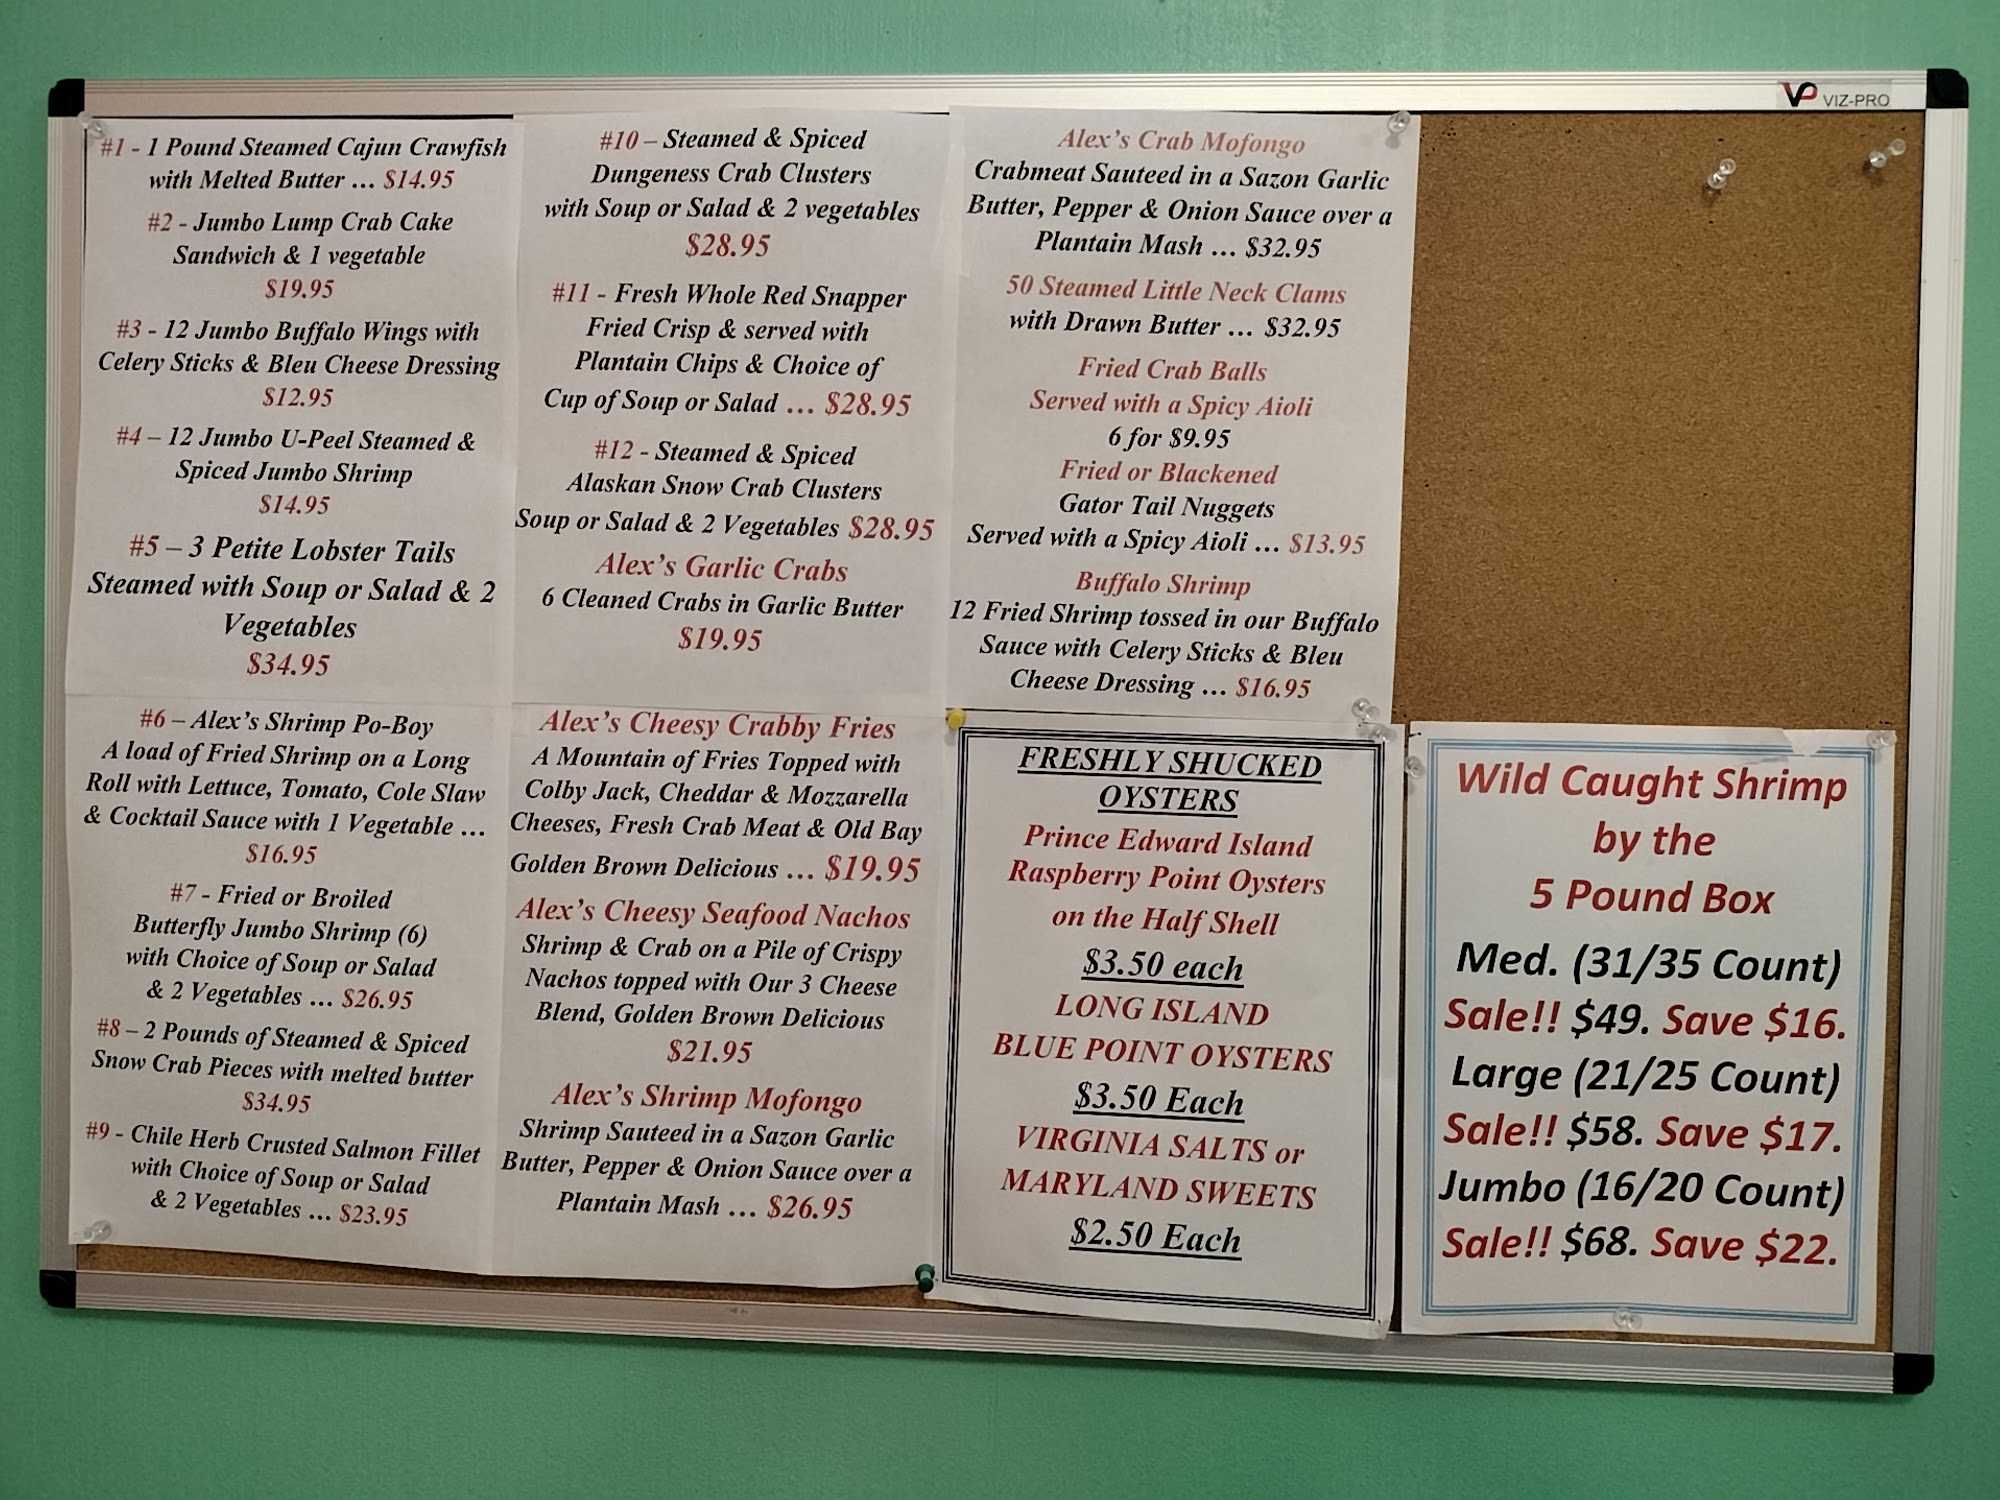 VP VIZ-PRO
#1 - 1 Pound Steamed Cajun Crawfish
with Melted Butter … $14.95
#2 - Jumbo Lump Crab Cake
Sandwich & 1 vegetable
$19.95
#3 - 12 Jumbo Buffalo Wings with
Celery Sticks & Bleu Cheese Dressing
$12.95
#4 – 12 Jumbo U-Peel Steamed &
Spiced Jumbo Shrimp
$14.95
#5 – 3 Petite Lobster Tails
Steamed with Soup or Salad & 2
Vegetables
$34.95
#6 – Alex's Shrimp Po-Boy
A load of Fried Shrimp on a Long
Roll with Lettuce, Tomato, Cole Slaw
& Cocktail Sauce with 1 Vegetable …
$16.95
#7 - Fried or Broiled
Butterfly Jumbo Shrimp (6)
with Choice of Soup or Salad
& 2 Vegetables … $26.95
#8 – 2 Pounds of Steamed & Spiced
Snow Crab Pieces with melted butter
$34.95
#9 - Chile Herb Crusted Salmon Fillet
with Choice of Soup or Salad
& 2 Vegetables … $23.95
#10 – Steamed & Spiced
Dungeness Crab Clusters
with Soup or Salad & 2 vegetables
$28.95
#11 - Fresh Whole Red Snapper
Fried Crisp & served with
Plantain Chips & Choice of
Cup of Soup or Salad … $28.95
#12 - Steamed & Spiced
Alaskan Snow Crab Clusters
Soup or Salad & 2 Vegetables $28.95
Alex's Garlic Crabs
6 Cleaned Crabs in Garlic Butter
$19.95
Alex's Cheesy Crabby Fries
A Mountain of Fries Topped with
Colby Jack, Cheddar & Mozzarella
Cheeses, Fresh Crab Meat & Old Bay
Golden Brown Delicious … $19.95
Alex's Cheesy Seafood Nachos
Shrimp & Crab on a Pile of Crispy
Nachos topped with Our 3 Cheese
Blend, Golden Brown Delicious
$21.95
Alex's Shrimp Mofongo
Shrimp Sauteed in a Sazon Garlic
Butter, Pepper & Onion Sauce over a
Plantain Mash … $26.95
Alex's Crab Mofongo
Crabmeat Sauteed in a Sazon Garlic
Butter, Pepper & Onion Sauce over a
Plantain Mash … $32.95
50 Steamed Little Neck Clams
with Drawn Butter … $32.95
Fried Crab Balls
Served with a Spicy Aioli
6 for $9.95
Fried or Blackened
Gator Tail Nuggets
Served with a Spicy Aioli … $13.95
Buffalo Shrimp
12 Fried Shrimp tossed in our Buffalo
Sauce with Celery Sticks & Bleu
Cheese Dressing … $16.95
FRESHLY SHUCKED
OYSTERS
Prince Edward Island
Raspberry Point Oysters
on the Half Shell
$3.50 each
LONG ISLAND
BLUE POINT OYSTERS
$3.50 Each
VIRGINIA SALTS or
MARYLAND SWEETS
$2.50 Each
Wild Caught Shrimp
by the
5 Pound Box
Med. (31/35 Count)
Sale!! $49. Save $16.
Large (21/25 Count)
Sale!! $58. Save $17.
Jumbo (16/20 Count)
Sale!! $68. Save $22.